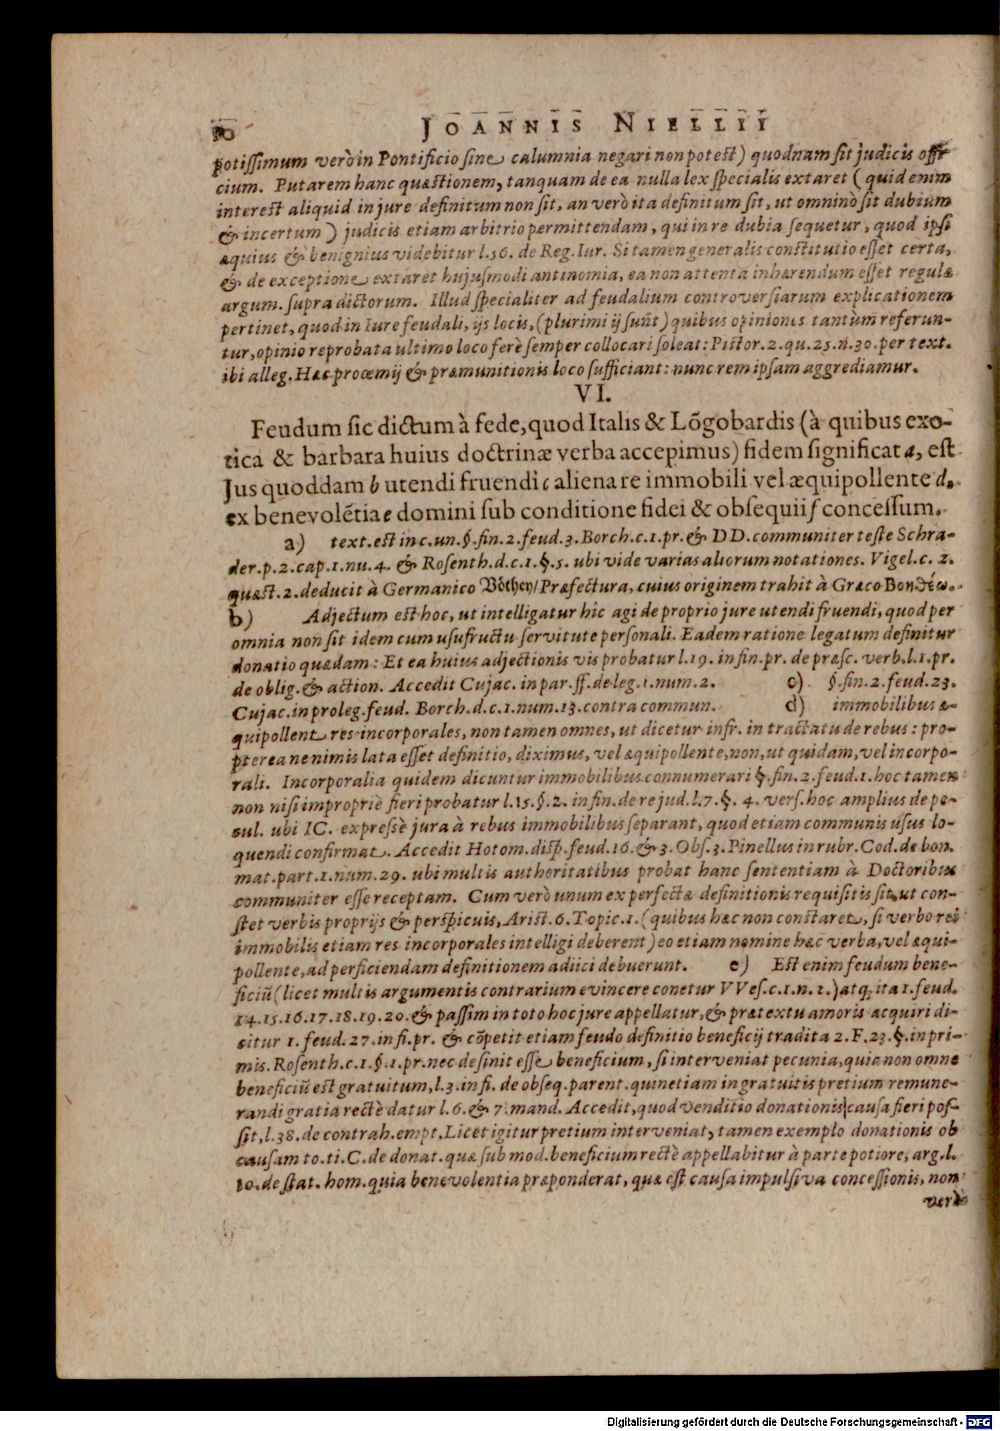 10 JOANNIS NIELLII
potissimum verò in Pontificio sine calumnia negari non potest) quodnam sit judicis offi-
cium. Putarem hanc quæstionem, tanquam de ea nulla lex specialis extaret (quid enim
interest aliquid in jure definitum non sit, an verò ita definitum sit, ut omninò sit dubium
& incertum) judicis etiam arbitrio permittendam, qui in re dubia sequetur, quod ipsi
æquius & benignius videbitur l.56. de Reg. Iur. Si tamen generalis constitutio esset certa,
& de exceptione extaret hujusmodi antinomia, ea non attenta inhærendum esset regulæ
argum. supra dictorum. Illud specialiter ad feudalium controversiarum explicationem
pertinet, quod in Iure feudali, ijs locis, (plurimi ij sunt) quibus opiniones tantùm referun-
tur, opinio reprobata ultimo loco ferè semper collocari soleat: Pistor. 2. qu. 25. n. 30. per text.
ibi alleg. Hæc proœmij & præmunitionis loco sufficiant: nunc rem ipsam aggrediamur.
VI.
Feudum sic dictum à fede, quod Italis & Lōgobardis (à quibus exo-
tica & barbara huius doctrinæ verba accepimus) fidem significat a, est
Jus quoddam b utendi fruendi c aliena re immobili vel æquipollente d,
ex benevolētia e domini sub conditione fidei & obsequii f concessum.
a) text. est in c. un. §. fin. 2. feud. 3. Borch. c. 1. pr. & DD. communiter teste Schra-
der. p. 2. cap. 1. nu. 4. & Rosenth. d. c. 1. §. 5. ubi vide varias aliorum notationes. Vigel. c. 2.
quæst. 2. deducit à Germanico Vöthey/ Præfectura, cuius originem trahit à Græco
b) Adjectum est hoc, ut intelligatur hîc agi de proprio jure utendi fruendi, quod per
omnia non sit idem cum usufructu servitute personali. Eadem ratione legatum definitur
donatio quædam: Et ea huius adjectionis vis probatur l. 19. in fin. pr. de præsc. verb. l. 1. pr.
de oblig. & action. Accedit Cujac. in par. ff. de leg. 1. num. 2. c) §. fin. 2. feud. 23.
Cujac. in proleg. feud. Borch. d. c. 1. num. 13. contra commun. d) immobilibus æ-
quipollent res incorporales, non tamen omnes, ut dicetur infr. in tractatu de rebus: pro-
pterea ne nimis lata esset definitio, diximus, vel æquipollente, non, ut quidam, vel incorpo-
rali. Incorporalia quidem dicuntur immobilibus connumerari §. fin. 2. feud. 1. hoc tamen
non nisi impropriè fieri probatur l. 15. §. 2. in fin. de re jud. l. 7. §. 4. vers. hoc amplius de pe-
cul. ubi IC. expressè jura à rebus immobilibus separant, quod etiam communis usus lo-
quendi confirmat. Accedit Hotom. disp. feud. 16. & 3. Obs. 3. Pinellus in rubr. Cod. de bon.
mat. part. 1. num. 29. ubi multis authoritatibus probat hanc sententiam à Doctoribus
communiter esse receptam. Cum verò unum ex perfectæ definitionis requisitis sit, ut con-
stet verbis proprijs & perspicuis, Arist. 6. Topic. 1. (quibus hæc non constaret, si verbo rei
immobilis etiam res incorporales intelligi deberent) eo etiam nomine hæc verba, vel æqui-
pollente, ad perficiendam definitionem adiici debuerunt. e) Est enim feudum bene-
ficiū (licet multis argumentis contrarium evincere conetur VVes. c. 1. n. 1.) atq; ita 1. feud.
14. 15. 16. 17. 18. 19. 20. & passim in toto hoc jure appellatur, & prætextu amoris acquiri di-
citur 1. feud. 27. in fi. pr. & cōpetit etiam feudo definitio beneficij tradita 2. F. 23. §. in pri-
mis. Rosenth. c. 1. §. 1. pr. nec desinit esse beneficium, si interveniat pecunia, quia non omne
beneficiū est gratuitum, l. 3. in fi. de obseq. parent. quinetiam in gratuitis pretium remune-
randi gratia rectè datur l. 6. & 7. mand. Accedit, quod venditio donationis causa fieri pos-
sit, l. 38. de contrah. empt. Licet igitur pretium interveniat, tamen exemplo donationis ob
causam to. ti. C. de donat. quæ sub mod. beneficium rectè appellabitur à parte potiore, arg. l.
10. de stat. hom. quia benevolentia præponderat, quæ est causa impulsiva concessionis, non
verò
Digitalisierung gefördert durch die Deutsche Forschungsgemeinschaft - DFG